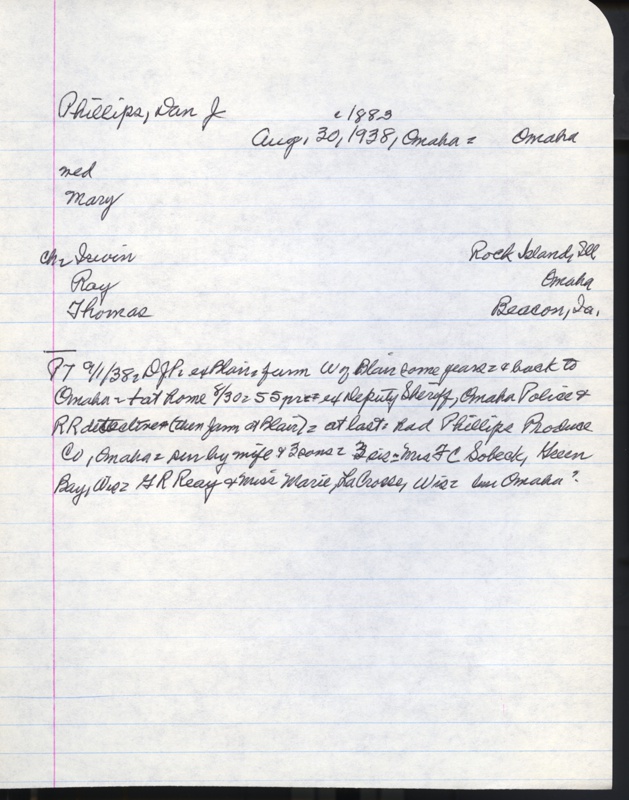 Phillips, Dan J c1883
Aug, 30, 1938, Omaha = Omaha
med
Mary
ch = Irwin Rock Island, Ill
Ray Omaha
Thomas Beacon, Ia.
PT 9/1/38 = DJP, ex Blair = farm W of Blair some years = & back to
Omaha = + at home 8/30 = 55 = ex Deputy Sheriff, Omaha Police &
RR detective + (then farm at Blair) = at last = had Phillips Produce
Co, Omaha = sur by wife & 3 sons = 3 sis = Mrs F C Sobeck, Green
Bay, Wis = G R Reay & Miss Marie, LaCrosse, Wis = bur Omaha?